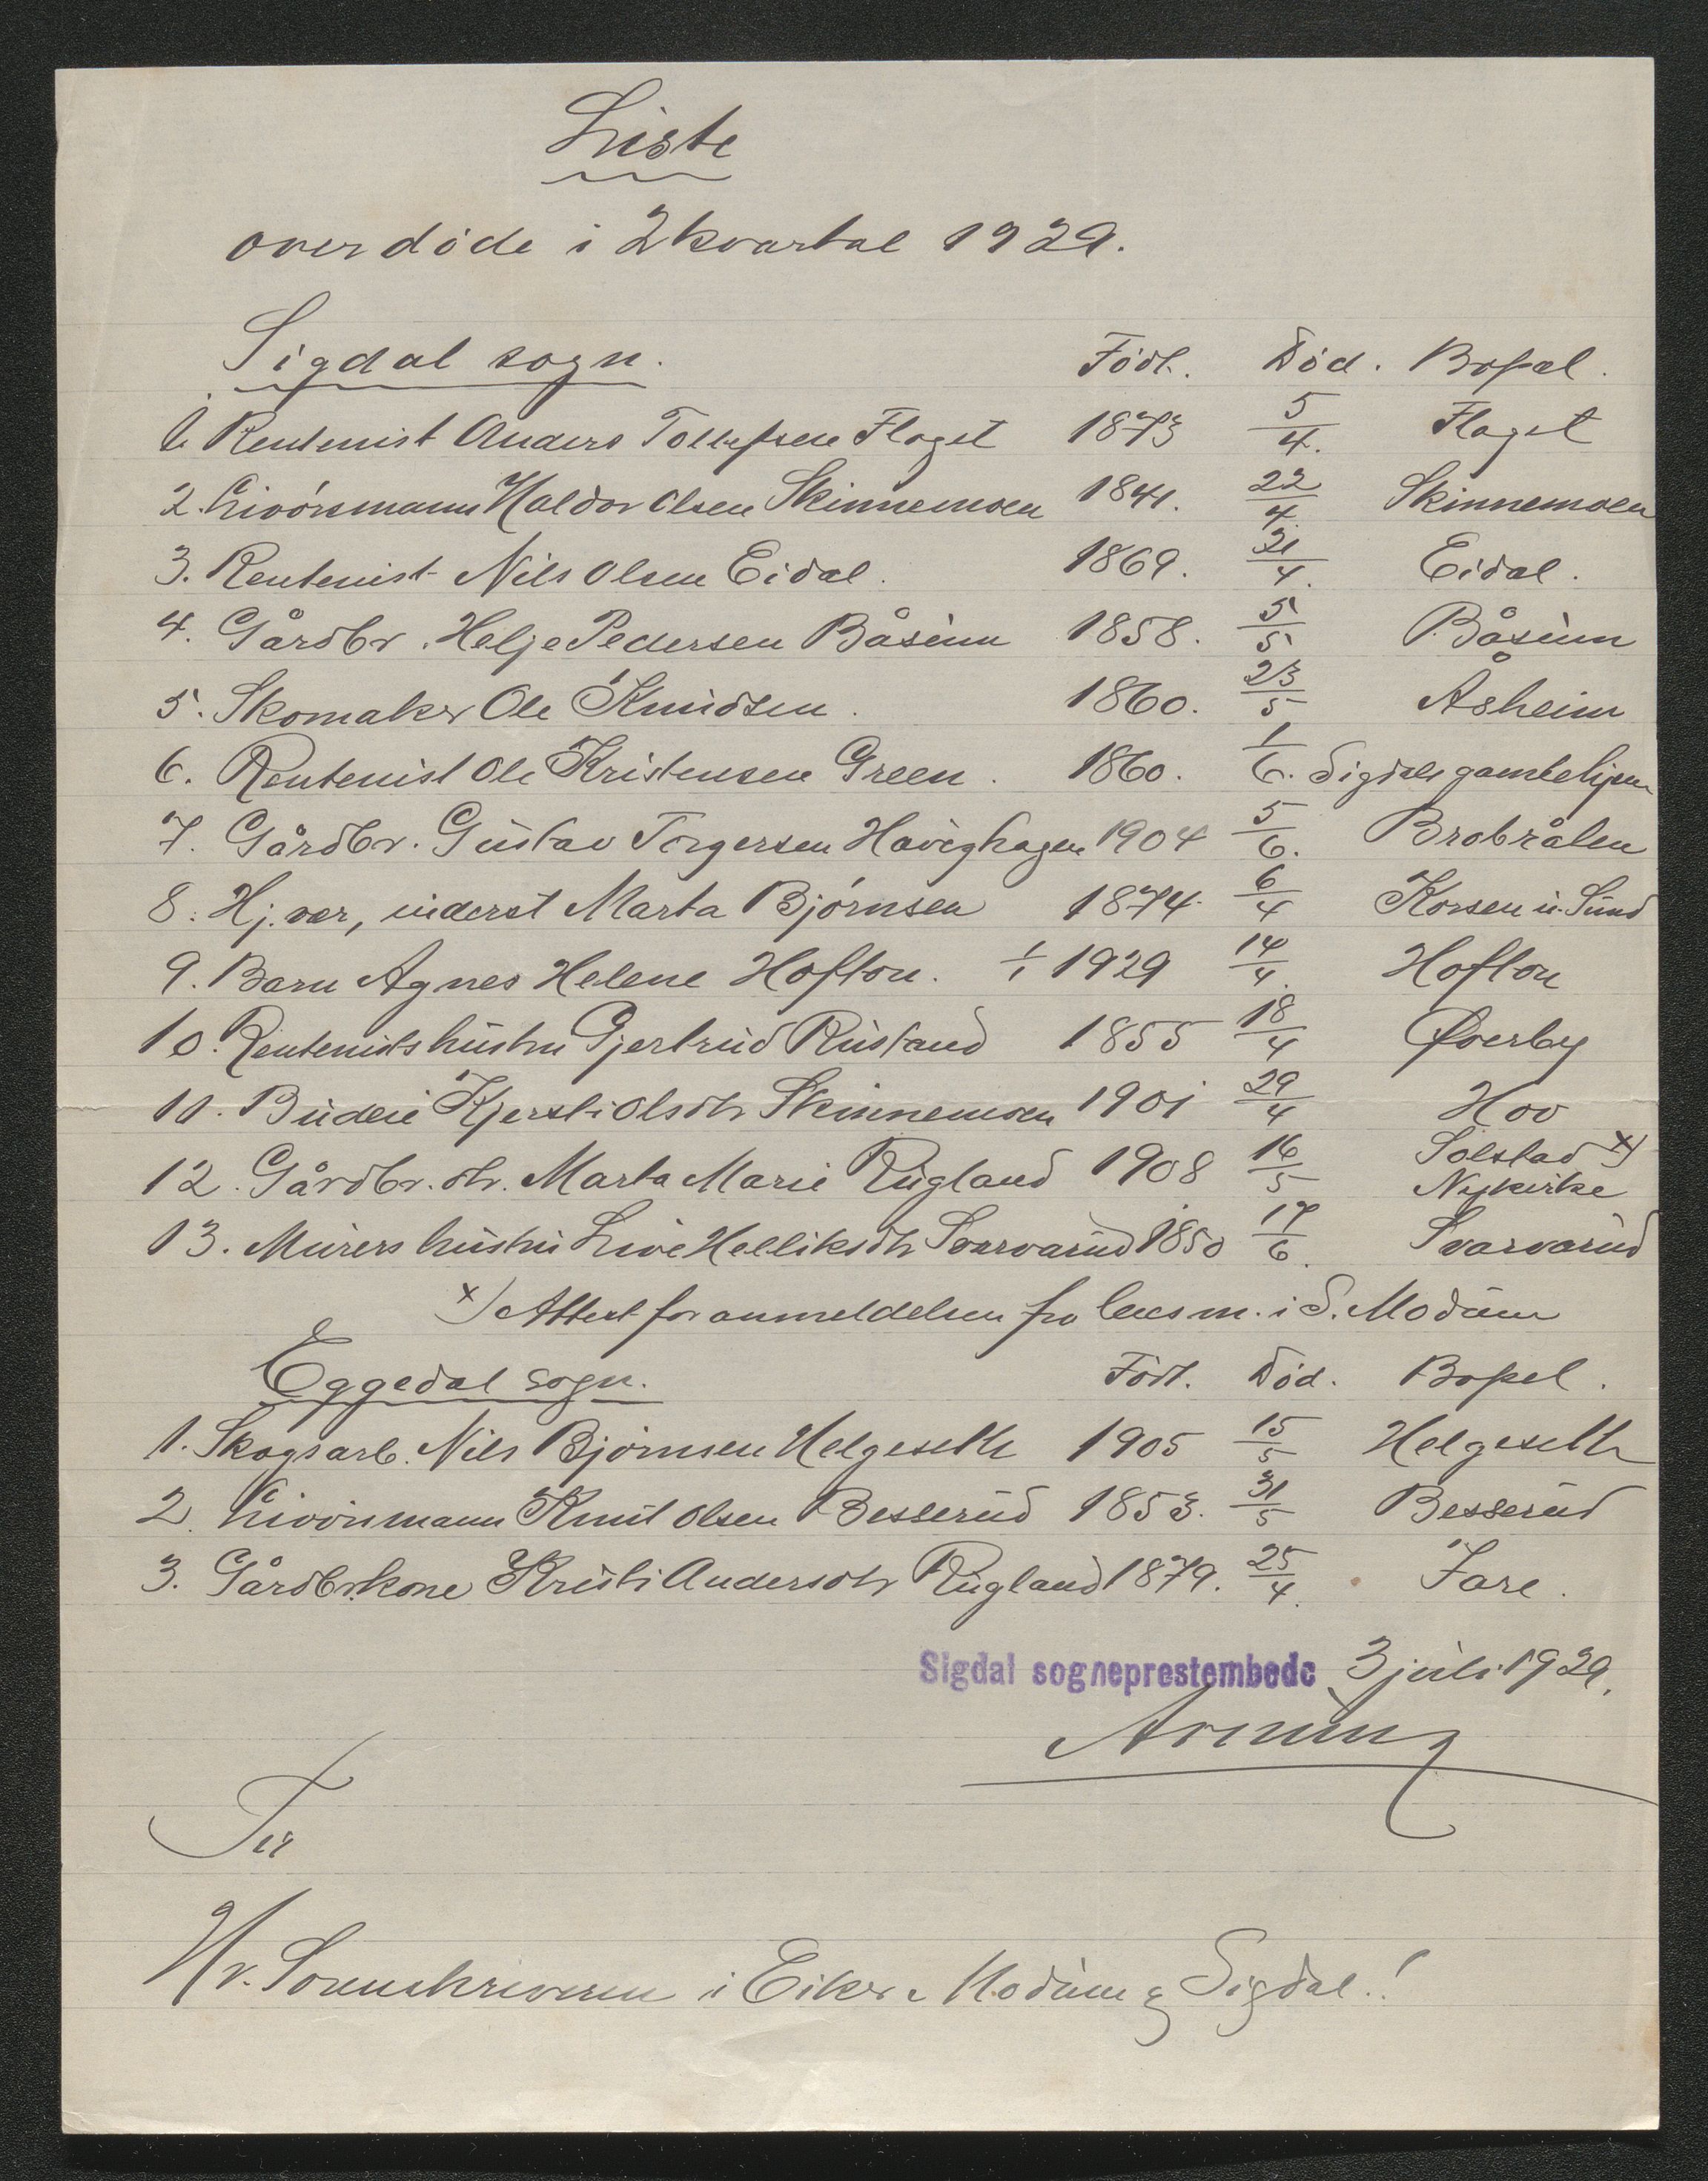 Liste
over døde i 2 kvartal 1929.
Sigdal sogn. Født. Død. Bopæl.
1. Rentenist Anders Tollefsen Flaget 1873 5/4. Flaget
2. Livørsmann Haldor Olsen Skinnemoen 1841. 22/4. Skinnemoen
3. Rentenist Nils Olsen Eidal. 1869. 21/4. Eidal.
4. Gårdbr. Helge Pedersen Båsum 1858. 5/5 Båsum
5. Skomaker Ole Knudsen. 1860. 23/5 Åsheim
6. Rentenist Ole Kristensen Green. 1860. 1/6. Sigdals gamlehjem
7. Gårdbr. Gustav Torgersen Haveghagen 1904 5/6. Brobråten
8. Hj.vær, inderst Marta Bjørnsen 1874. 6/4 Korsen u. Sund
9. Barn Agnes Helene Hofton. 1/1 1929 14/4. Hofton
10. Rentenists hustru Gjertrud Rustand 1855 18/4 Øverby
11. Budeie Kjersti Olsdtr Skinnemoen 1901 29/4 Hov
12. Gårdbr. dtr. Marta Marie Rugland 1908 16/5 Solstad x)
Nykirke
13. Murers hustru Live Helliksdtr Svarvarud 1850 17/6. Svarvarud
x) Attest for anmeldelsen fra lensm. i S. Modum
Eggedal sogn. Født. Død. Bopæl.
1. Skogsarb. Nils Bjørnsen Helgeseth 1905 15/5 Helgeseth
2. Livørsmann Knut Olsen Besserud 1853. 31/5 Besserud
3. Gårdbr.kone Kristi Andersdtr Rugland 1879. 25/4. Fare.
Sigdal sogneprestembede 3 juli 1929.
Til
Hr. Sorenskriveren i Eiker, Modum & Sigdal!